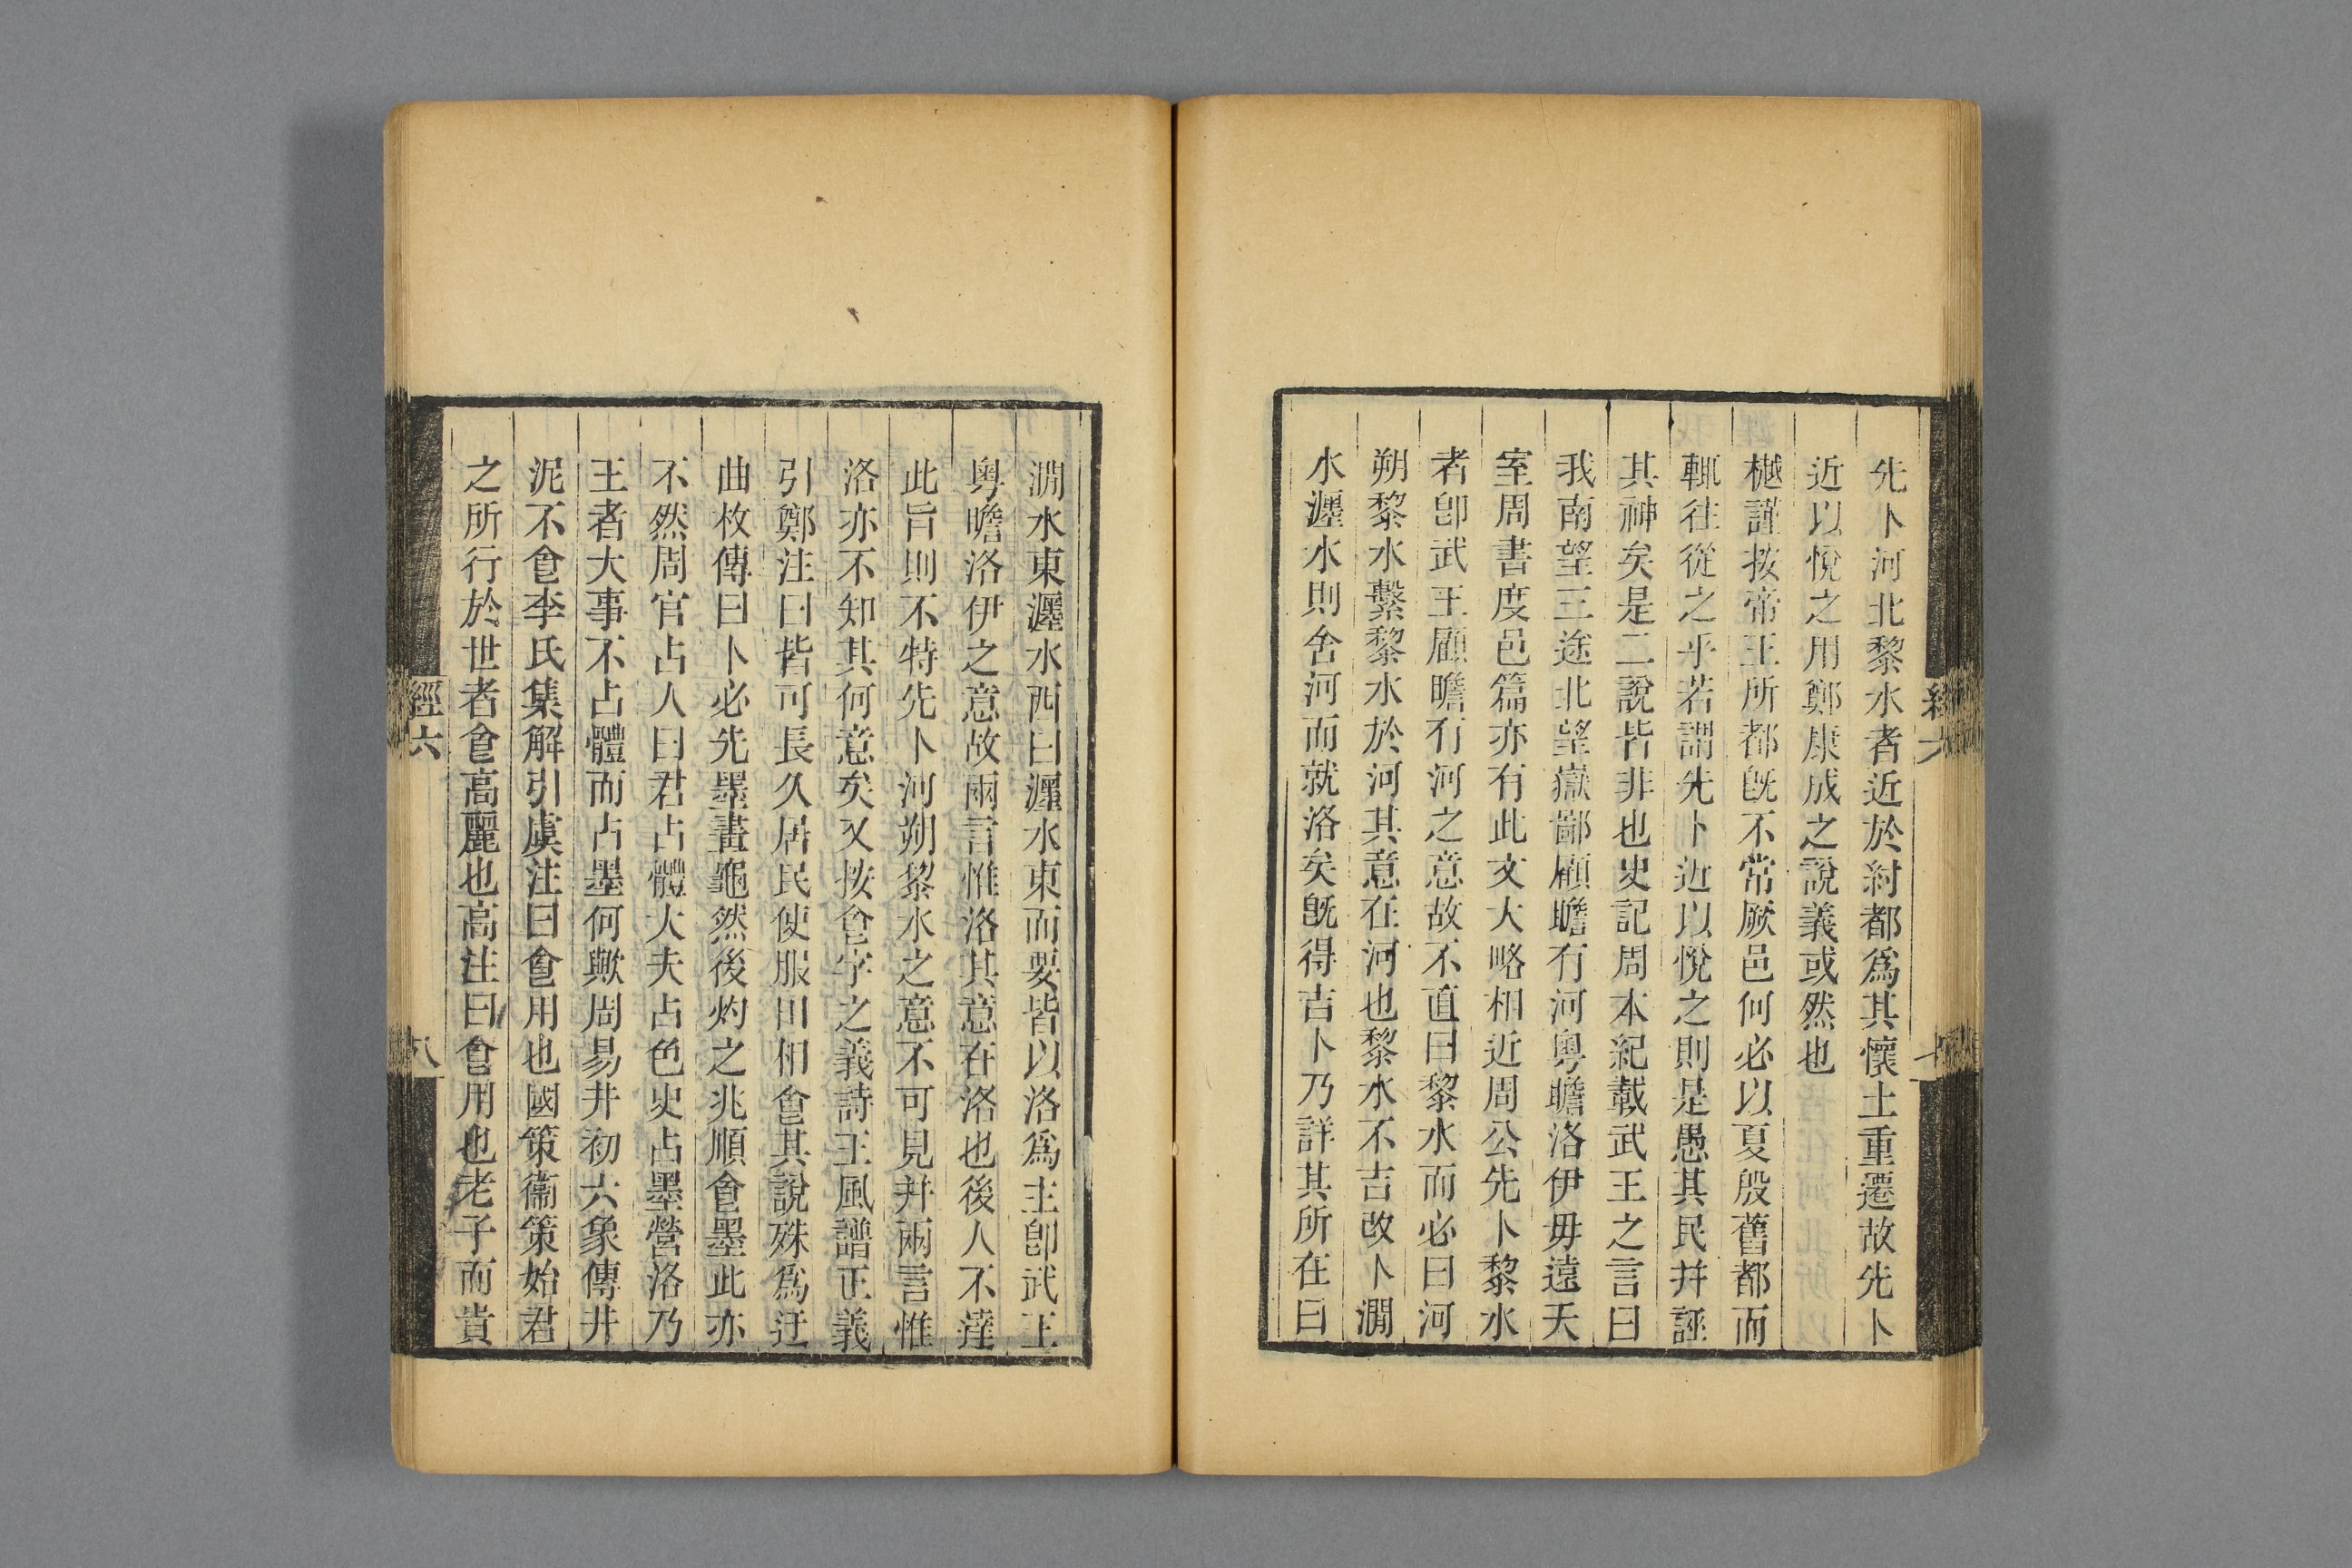 先卜河北黎水者近於紂都爲其懷土重遷故先卜
近以悅之用鄭康成之說義或然也
樾謹按帝王所都旣不常厥邑何必以夏殷舊都而
輒往從之乎若謂先卜近以悅之則是愚其民幷誣
其神矣是二說皆非也史記周本紀載武王之言曰
我南望三途北望嶽鄙顧瞻有河粵瞻洛伊毋遠天
室周書度邑篇亦有此文大略相近周公先卜黎水
者卽武王顧瞻有河之意故不直曰黎水而必曰河
朔黎水繫黎水於河其意在河也黎水不吉改卜澗
水瀍水則舍河而就洛矣旣得吉卜乃詳其所在曰
經六
七
澗水東瀍水西曰瀍水東而要皆以洛爲主卽武王
粵瞻洛伊之意故兩言惟洛其意在洛也後人不達
此旨則不特先卜河朔黎水之意不可見幷兩言惟
洛亦不知其何意矣又按食字之義詩王風譜正義
引鄭注曰皆可長久居民使服田相食其說殊爲迂
曲枚傳曰卜必先墨畫龜然後灼之兆順食墨此亦
不然周官占人曰君占體大夫占色史占墨營洛乃
王者大事不占體而占墨何歟周易井初六象傳井
泥不食李氏集解引虞注曰食用也國策衞策始君
之所行於世者食高麗也高注曰食用也老子而貴
經六
八